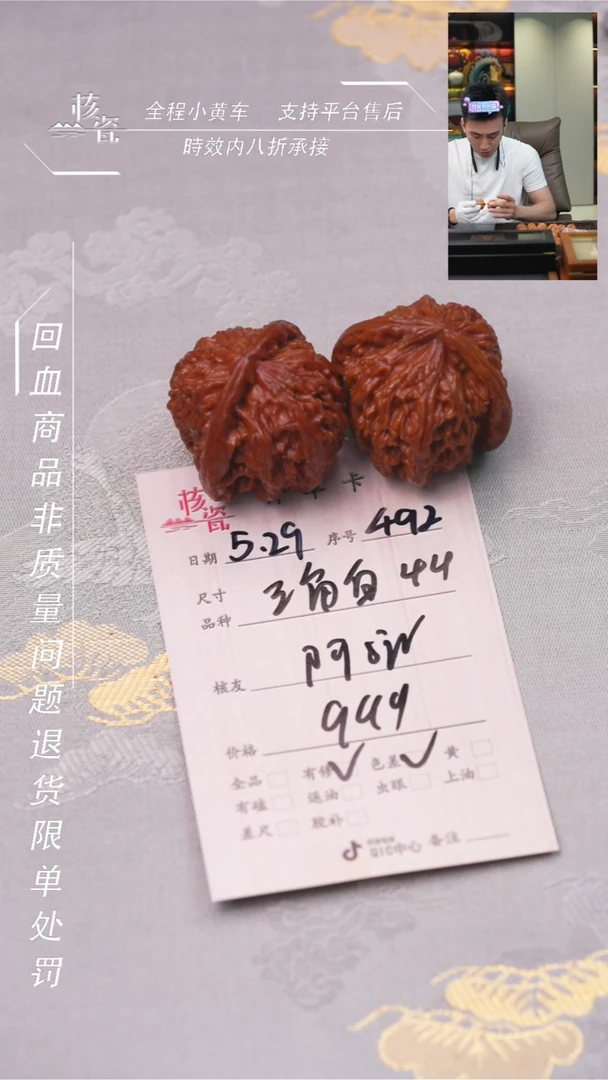 核瓷
全程小黄车 支持平台售后
時效内八折承接
回血商品非质量问题退货限单处罚
核瓷
卡
日期 5.29 序号 492
尺寸
品种 三角白 44
核友
价格 949
全品 有修 色差 黄
有磕 返油 虫眼 上油
差尺 胶补
QIC中心 备注